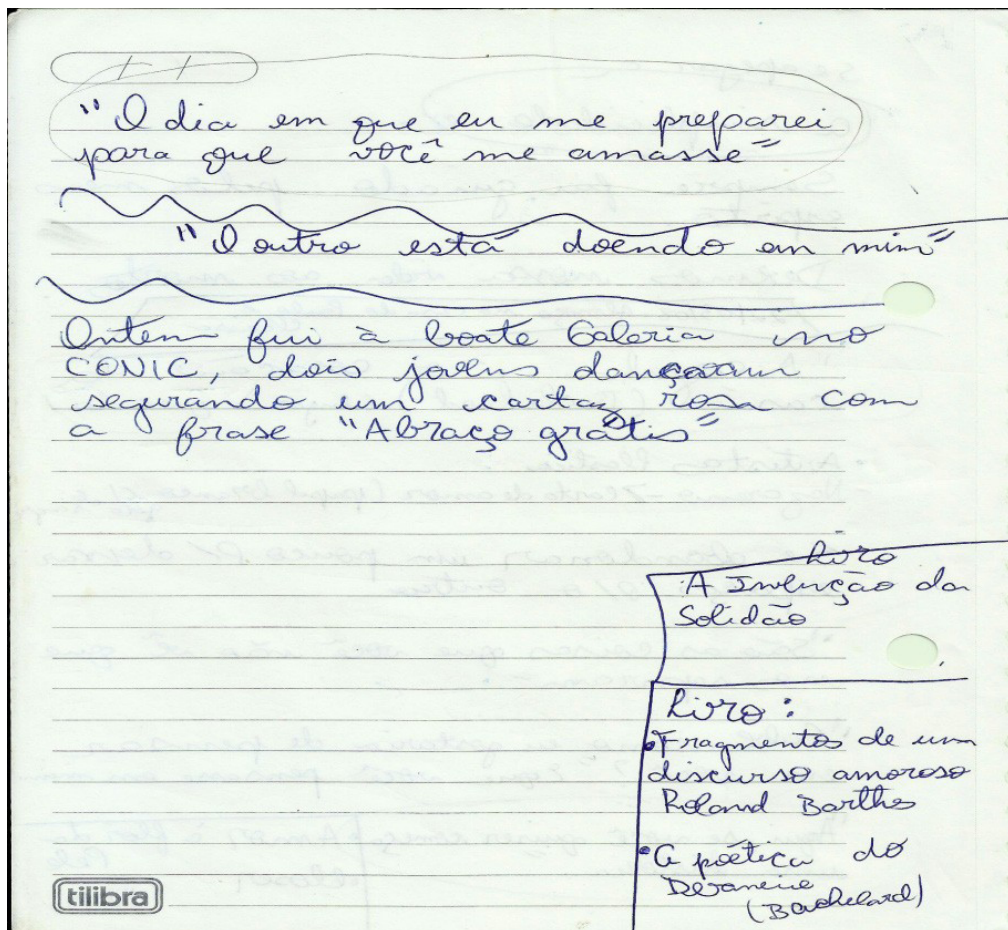 "O dia em que eu me preparei
para que você me amasse"
"O outro está doendo em mim"
Ontem fui à boate Galeria no
CONIC, dois jovens dançavam
segurando um cartaz rosa com
a frase "Abraço grátis"
Livro
A Invenção da
Solidão
Livro:
•Fragmentos de um
discurso amoroso
Roland Barthes
•A poética do
Devaneio
(Bachelard)
tilibra